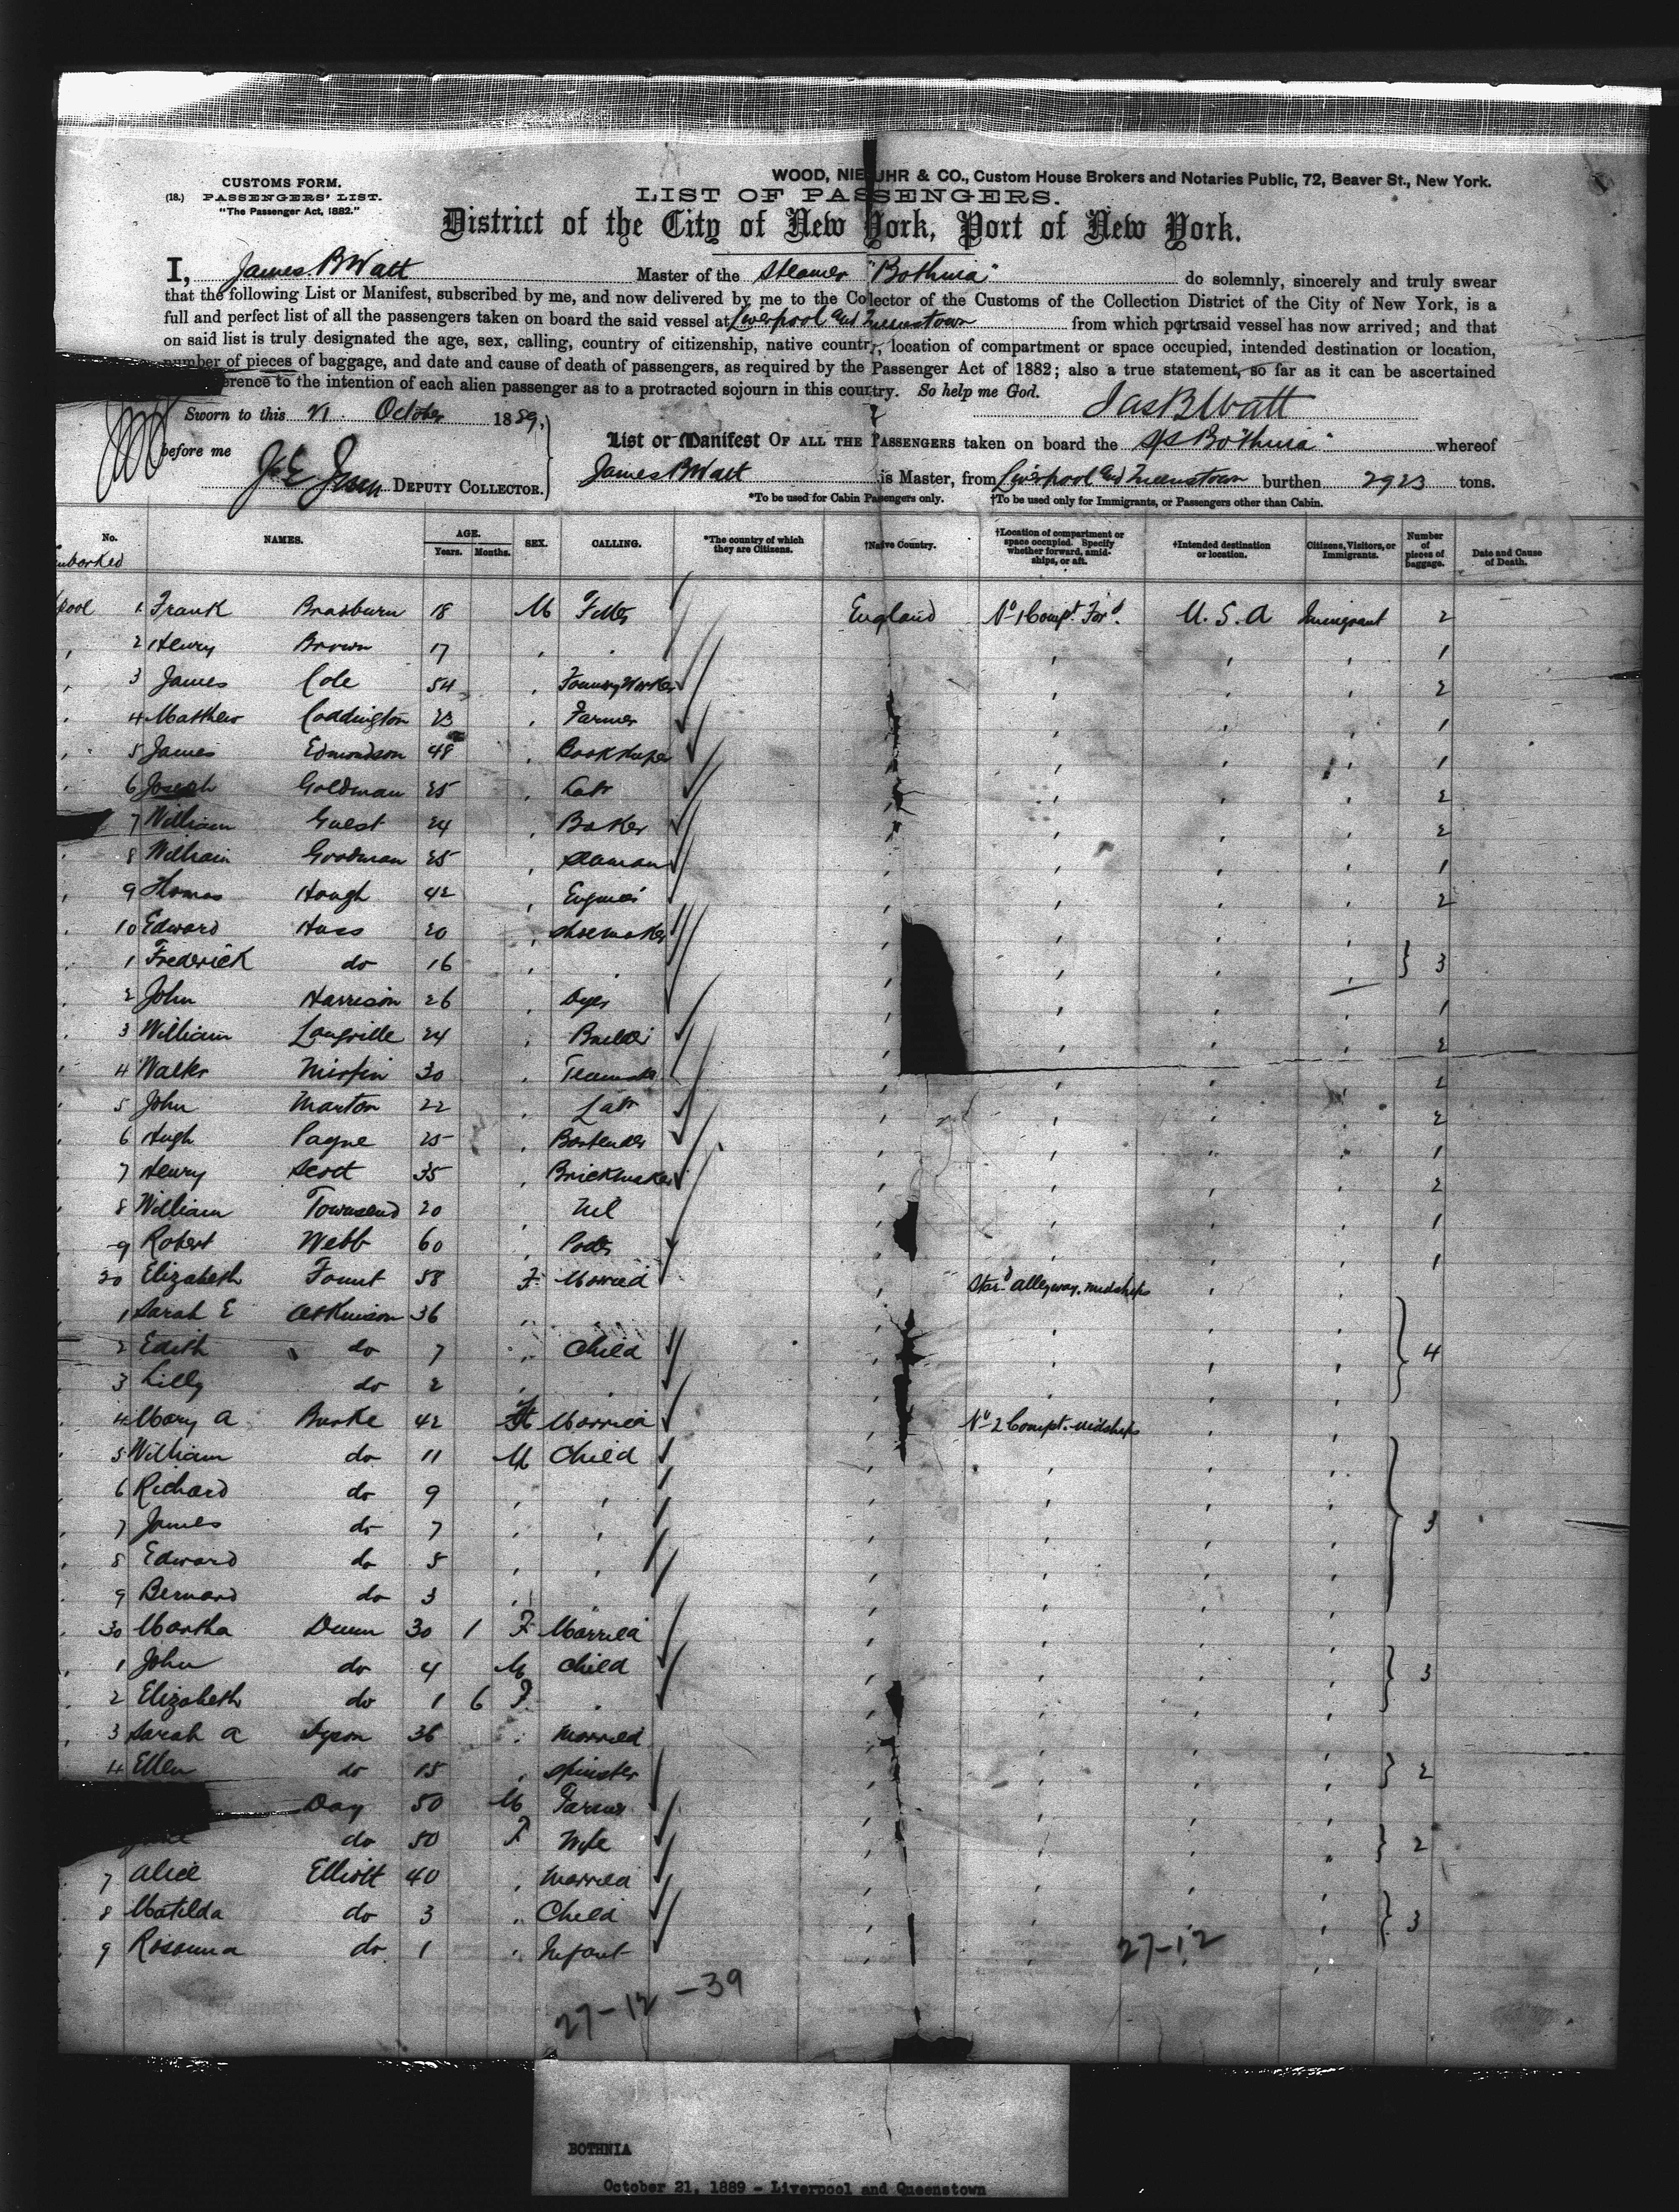 WOOD, NIEBUHR & CO., Custom House Brokers and Notaries Public, 72, Beaver St., New York.
CUSTOMS FORM.
(18.) PASSENGERS' LIST.
"The Passenger Act, 1882."
LIST OF PASSENGERS.
District of the City of New York, Port of New York.
I, James B Watt Master of the Steamer "Bothnia" do solemnly, sincerely and truly swear
that the following List or Manifest, subscribed by me, and now delivered by me to the Collector of the Customs of the Collection District of the City of New York, is a
full and perfect list of all the passengers taken on board the said vessel at Liverpool and Queenstown from which port said vessel has now arrived; and that
on said list is truly designated the age, sex, calling, country of citizenship, native country, location of compartment or space occupied, intended destination or location,
number of pieces of baggage, and date and cause of death of passengers, as required by the Passenger Act of 1882; also a true statement, so far as it can be ascertained
erence to the intention of each alien passenger as to a protracted sojourn in this country. So help me God.
Jas B Watt
Sworn to this 21 October 1889,
before me
DEPUTY COLLECTOR.
List or Manifest OF ALL THE PASSENGERS taken on board the S/S "Bothnia" whereof
James B Watt is Master, from Liverpool and Queenstown burthen 2923 tons.
*To be used for Cabin Passengers only. †To be used only for Immigrants, or Passengers other than Cabin.
No. NAMES. AGE. Years. Months. SEX. CALLING. *The country of which they are Citizens. †Native Country. †Location of compartment or space occupied. Specify whether forward, amidships, or aft. †Intended destination or location. Citizens, Visitors, or Immigrants. Number of pieces of baggage. Date and Cause of Death.
mbarked
pool 1 Frank Brasburn 18 M Fitter England No 1 Compt. Ford. U.S.A Immigrant 2
2 Henry Brown 17 1
3 James Cole 54 Foundry Worker 2
4 Matthew Coddington 23 Farmer 1
5 James Edmondson 48 Bookkeeper 1
6 Joseph Goldman 25 Labr 2
7 William Guest 24 Baker 2
8 William Goodman 25 Seaman 1
9 Thomas Hough 42 Engineer 2
10 Edward Huss 20 Shoemaker
1 Frederick do 16 3
2 John Harrison 26 Dyer 1
3 William Longville 24 Builder 2
4 Walter Mirfin 30 Teamster 2
5 John Marton 22 Labr 2
6 Hugh Payne 25 Bartender 1
7 Henry Scott 35 Brickmaker 2
8 William Townsend 20 Nil 1
9 Robert Webb 60 Porter 1
20 Elizabeth 58 F Married Stard alleyway. midships
1 Sarah E Atkinson 36
2 Edith do 7 Child 4
3 Lilly do 2
4 Mary A Burke 42 Married No 2 Compt. midships
5 William do 11 M Child
6 Richard do 9
7 James do 7 3
8 Edward do 5
9 Bernard do 3
30 Martha Dunn 30 1 F Married
1 John do 4 M Child 3
2 Elizabeth do 1 6 F
3 Sarah A Dyson 36 Married
4 Ellen do 15 Spinster 2
Day 50 M Farmer
do 50 F Wife 2
7 Alice Elliott 40 Married
8 Matilda do 3 Child 3
9 Rosanna do 1 Infant
27-12
27-12-39
BOTHNIA
October 21, 1889 - Liverpool and Queenstown